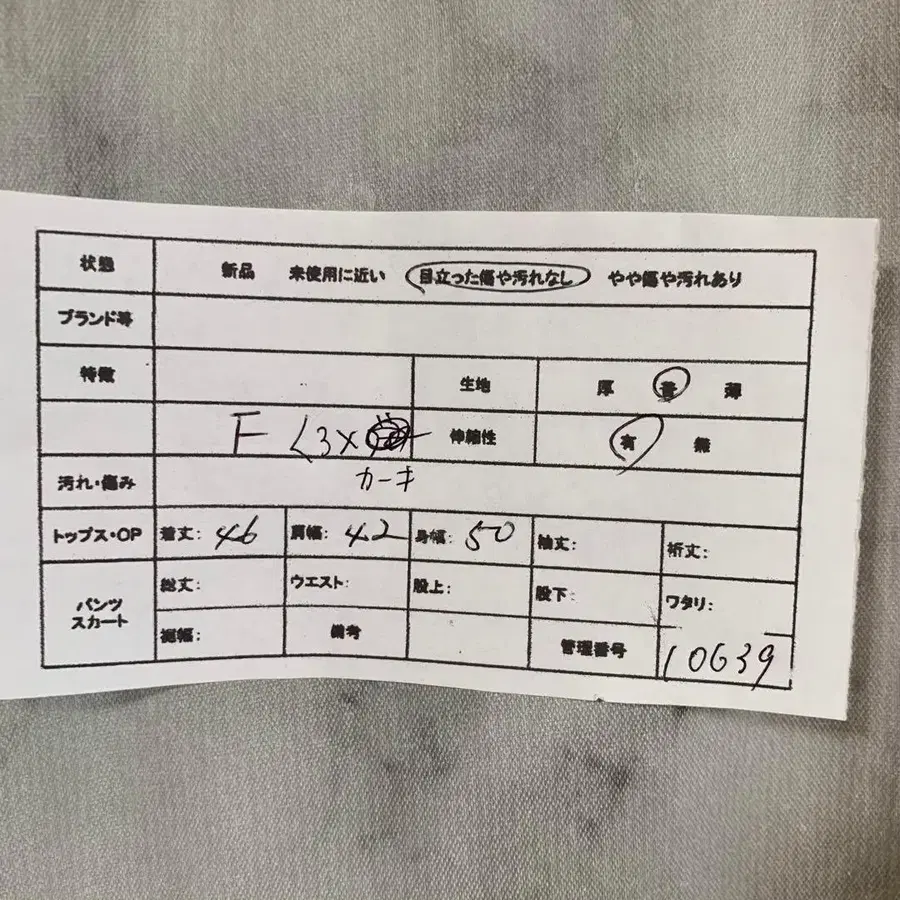 状態 新品 未使用に近い 目立った傷や汚れなし やや傷や汚れあり
ブランド等
特徴 生地 厚 普 薄
F く3× 伸縮性 有 無
汚れ・傷み カーキ
トップス・OP 着丈: 46 肩幅: 42 身幅: 50 袖丈: 裄丈:
パンツ スカート 総丈: ウエスト: 股上: 股下: ワタリ:
裾幅: 備考 管理番号 10639